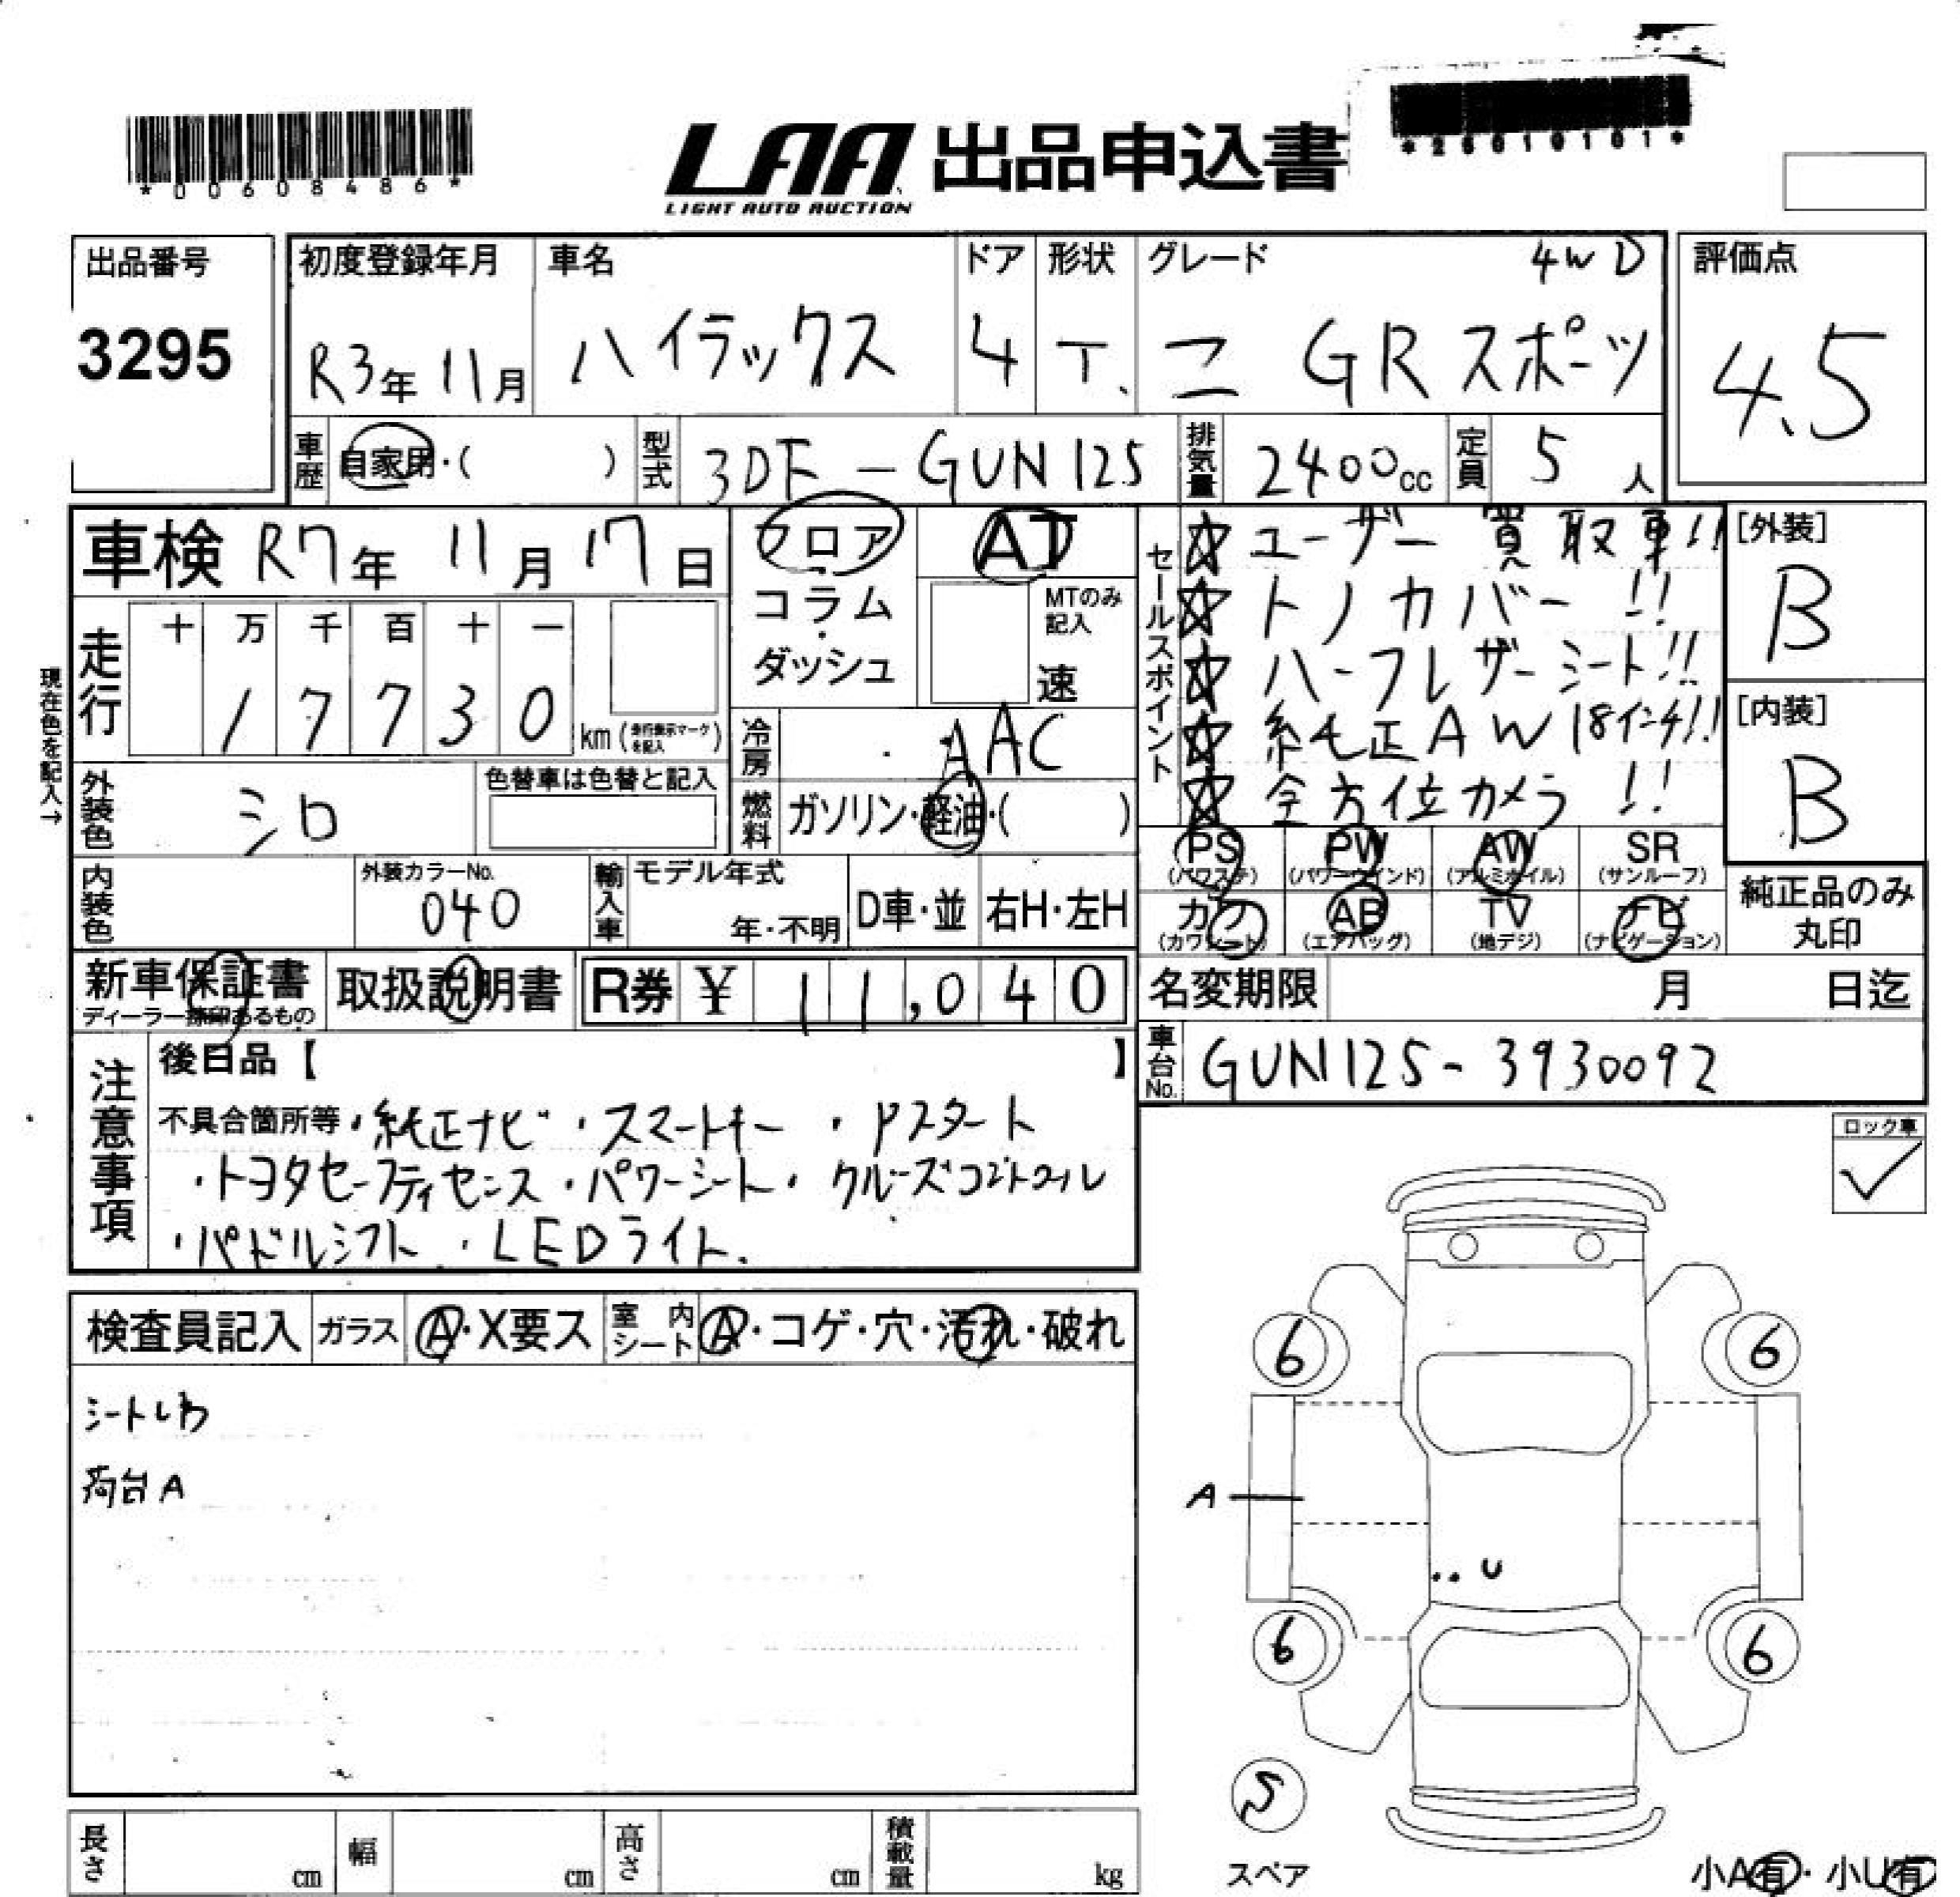 *00608486*
LAA 出品申込書
LIGHT AUTO AUCTION
*26010101*
出品番号
3295
初度登録年月
R3年 11月
車名
ハイラックス
ドア
4
形状
T.
グレード 4WD
Z GRスポーツ
評価点
4.5
車歴
自家用・( )
型式
3DF-GUN125
排気量
2400cc
定員
5人
車検 R7年 11月 17日
フロア
コラム
・
ダッシュ
AT
MTのみ
記入
速
セールスポイント
☆ユーザー買取車!!
☆トノカバー!!
☆ハーフレザーシート!!
☆純正AW18インチ!!
☆全方位カメラ!!
[外装]
B
[内装]
B
現在色を記入→
走行
十 万 千 百 十 一
1 7 7 3 0
km(走行表示マークを記入)
冷房
AAC
外装色
シロ
色替車は色替と記入
燃料
ガソリン・軽油・( )
PS
(パワステ)
PW
(パワーウインド)
AW
(アルミホイル)
SR
(サンルーフ)
カワ
(カワシート)
AB
(エアバッグ)
TV
(地デジ)
ナビ
(ナビゲーション)
純正品のみ
丸印
内装色
外装カラーNo.
040
輸入車
モデル年式
年・不明
D車・並
右H・左H
新車保証書
ディーラー捺印あるもの
取扱説明書
R券 ¥ 11,040
名変期限 月 日迄
車台No.
GUN125-3930092
注意事項
後日品【 】
不具合箇所等・純正ナビ・スマートキー・Pスタート
・トヨタセーフティセンス・パワーシート・クルーズコントロール
・パドルシフト・LEDライト.
ロック車
✓
検査員記入
ガラス
A・X要ス
室内シート
A・コゲ・穴・汚れ・破れ
シートしわ
荷台A
6
6
A
・・U
6
6
5
スペア
小A有・小U有
長さ cm
幅 cm
高さ cm
積載量 kg